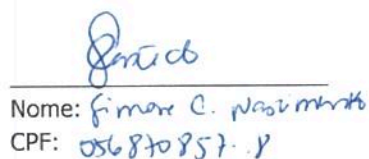 Nome: Simone C. Nascimento
CPF: 056870857-8